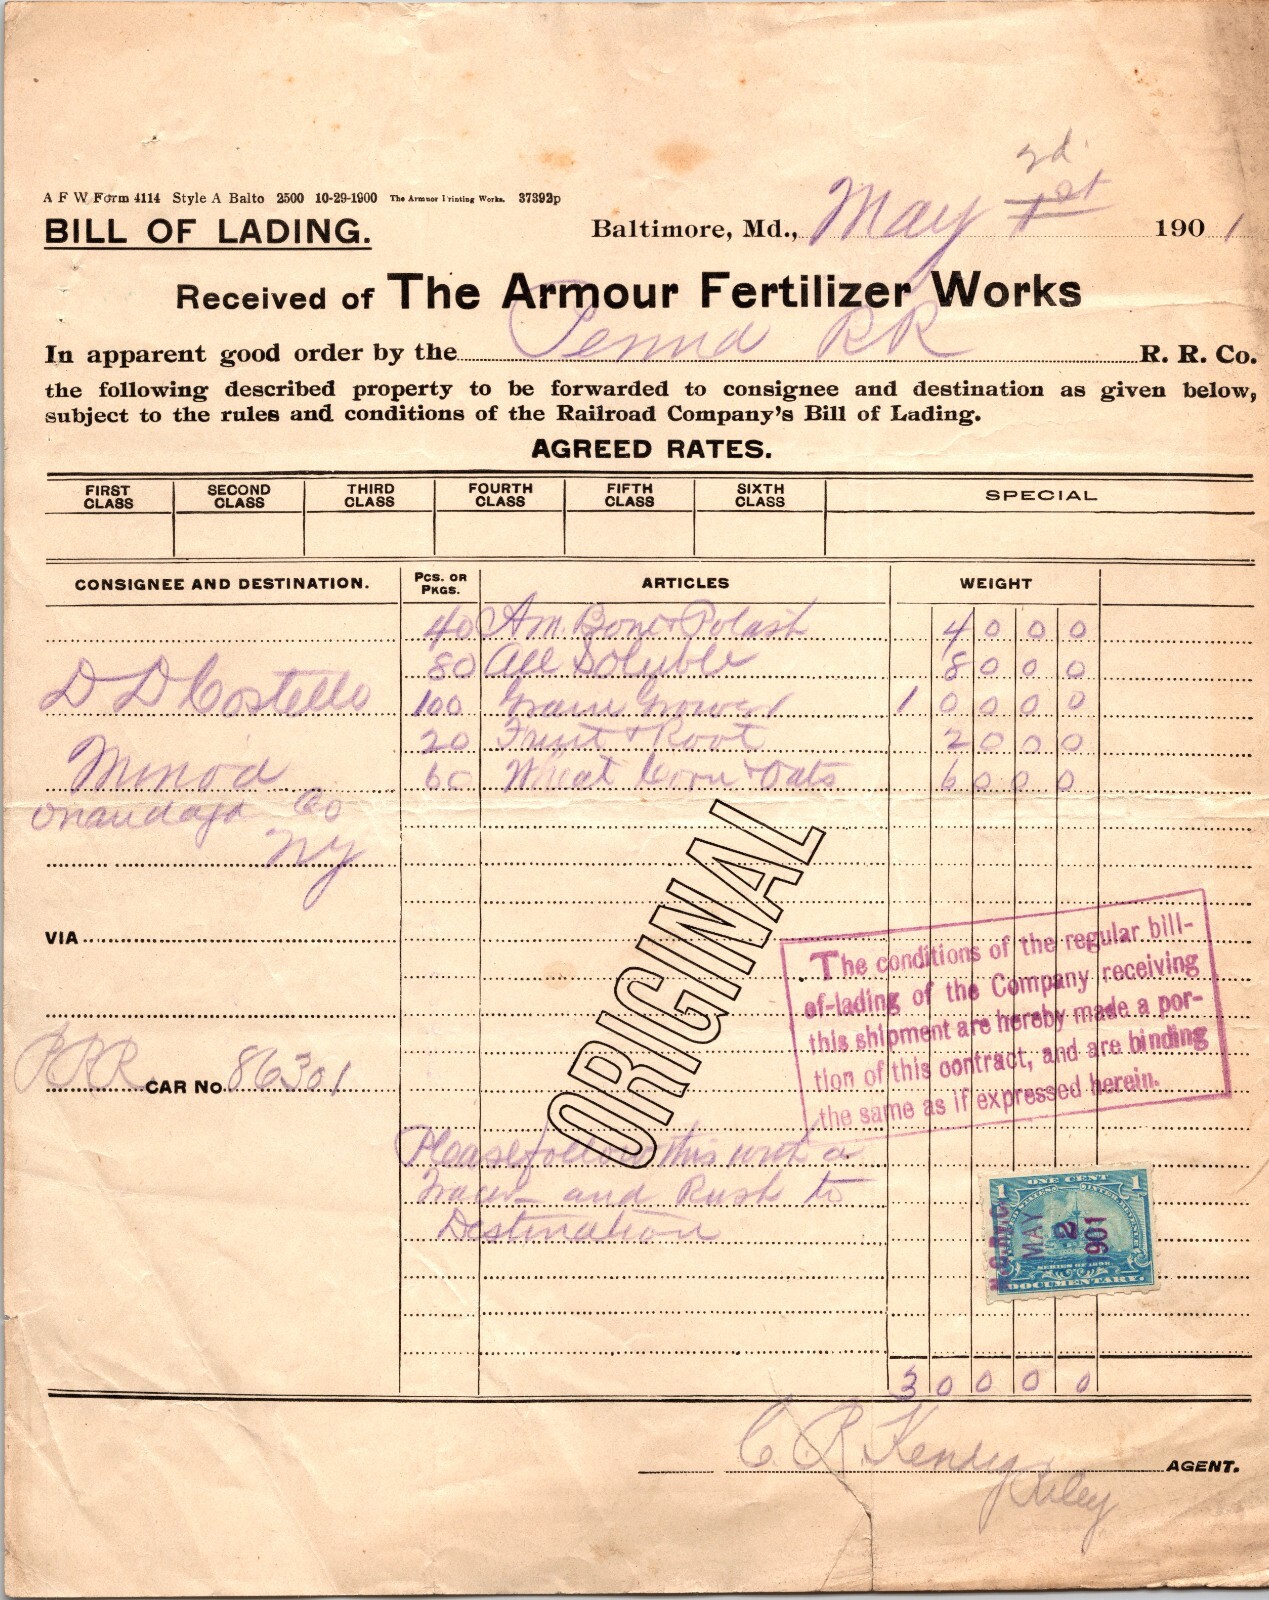 A F W Form 4114 Style A Balto 2500 10-29-1900 The Armour Printing Works. 37392p
2d.
BILL OF LADING. Baltimore, Md., May 1st 1901
Received of The Armour Fertilizer Works
In apparent good order by the Penna RR R. R. Co.
the following described property to be forwarded to consignee and destination as given below,
subject to the rules and conditions of the Railroad Company's Bill of Lading.
AGREED RATES.
FIRST CLASS SECOND CLASS THIRD CLASS FOURTH CLASS FIFTH CLASS SIXTH CLASS SPECIAL
CONSIGNEE AND DESTINATION. PCS. OR PKGS. ARTICLES WEIGHT
40 Am. Bone & Potash 4000
80 All Soluble 8000
D D Costello 100 Grain Grower 10000
20 Fruit & Root 2000
Minoa 60 Wheat Corn & Oats 6000
Onandaga Co
NY
ORIGINAL
VIA
The conditions of the regular bill-
of-lading of the Company receiving
this shipment are hereby made a por-
tion of this contract, and are binding
the same as if expressed herein.
PRR CAR No 86301
Please follow this with a
Tracer and Rush to
Destination
1 ONE CENT 1
UNITED STATES INTER. REVENUE
MAY
2
1901
SERIES OF 1898
DOCUMENTARY.
30000
C. R. Kendig AGENT.
Riley